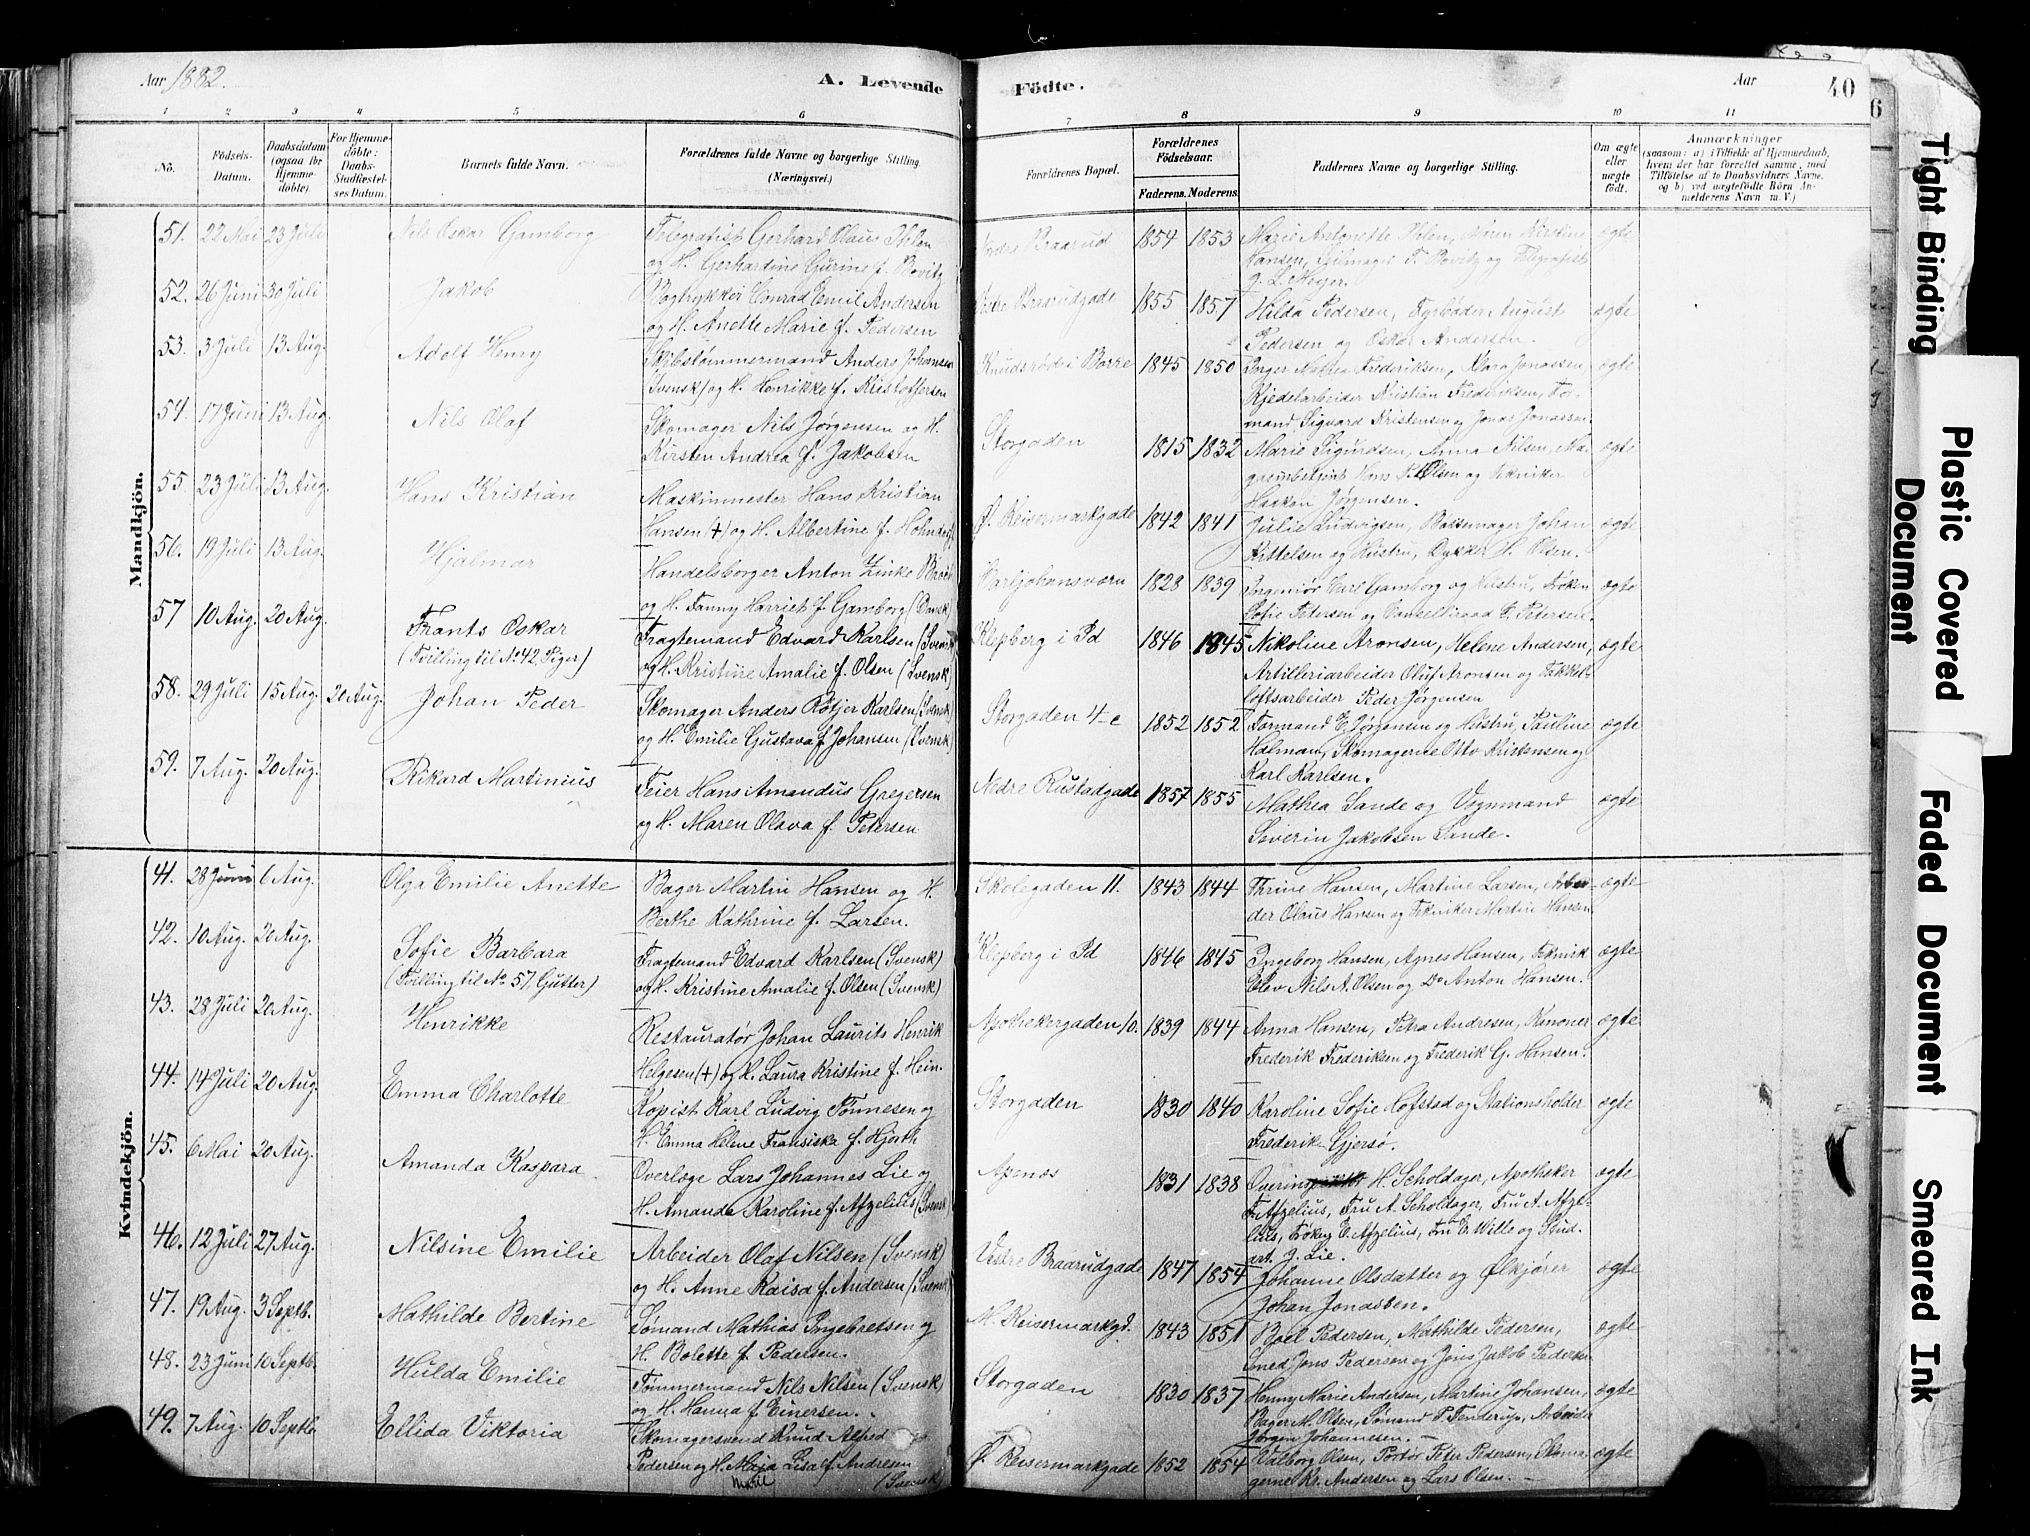 Aar 1882.
A. Levende
Födte.
Aar
40
6
1 2 3 4 5 6 7 8 9 10 11
No.
Födsels-
Datum.
Daabsdatum
(ogsaa for
Hjemme-
döbte).
For Hjemme-
döbte:
Daabs-
Stadfæstel-
ses Datum.
Barnets fulde Navn.
Forældrenes fulde Navne og borgerlige Stilling
(Næringsvei.)
Forældrenes Bopæl.
Forældrenes
Födselsaar.
Faderens. Moderens.
Faddernes Navne og borgerlige Stilling.
Om ægte
eller
uægte
födt.
Anmærkninger
(saasom: a) i Tilfælde af Hjemmedaab,
hvem der har forrettet samme, med
Tilföielse af to Daabsvidners Navne.
og b) ved uægtefödte Börn An-
melderens Navn m. V.)
Mandkjön.
51. 22 Mai 23 Juli Nils Oskar Gamborg Telegrafist Gerhard Olaus Ihlen
og H. Gerhardine Gurine f. Bovitz
Braarud 1854 1853 Marie Antonette Ihlen, Kirstine
Hansen, F. Bovitz og Telegrafist
J. L. Meyer.
ægte
52. 26 Juni 30 Juli Jakob Bogtrykker Conrad Emil Andersen
og H. Anette Marie f. Pedersen
Braarudgade 1855 1857 Hilda Pedersen, Fyrbøder August
Pedersen og Oskar Andersen.
ægte
53. 3 Juli 13 Aug. Adolf Henry Skibstømmermand Anders Johansen
(Svensk) og H. Henrikke f. Kristoffersen
Knudsrød i Borre 1845 1850 Inger Mathea Frederiksen, Klara Jonassen,
Kjedelarbeider Kristian Frederiksen, For-
mand Sigvard Kristensen og Jonas Jonassen
ægte
54. 17 Juni 13 Aug. Nils Olaf Skomager Nils Jørgensen og H.
Kirsten Andrea f. Jakobsen
Storgaden 1815 1832 Marie Sigurdsen, Anna Nilsen, Ma-
Hans P. Olsen og Tekniker
Haakon Jørgensen.
ægte
55. 23 Juli 13 Aug. Hans Kristian Maskinmester Hans Kristian
Hansen (+) og H. Albertine f.
Ø. Keisermarkgade 1842 1841 Julie Ludvigsen, Bøssemager Johan
Kittelsen og Hustru, Dykker H. Olsen.
ægte
56. 19 Juli 13 Aug. Hjalmar Handelsborger Anton Zinke
og H. Fanny Harriet f. Gamborg (Dansk)
Karljohansværn 1828 1839 Ingeniør Carl Gamborg og Hustru, Frøken
Sofie Petersen og Cancelliraad G. Petersen.
ægte
57 10 Aug. 20 Aug. Frants Oskar
(Tvilling til No 42, Piger)
Fragtemand Edvard Karlsen (Svensk)
og H. Kristine Amalie f. Olsen (Svensk)
Klepberg i Pd 1846 1845 Nikoline Aronsen, Helene Andersen,
Artilleriarbeider Oluf Aronsen og Takkel-
loftsarbeider Peder Jørgensen
ægte
58. 29 Juli 15 Aug. 20 Aug. Johan Peder Skomager Anders Røtjer Karlsen (Svensk)
og H. Emilie Gustava f. Johansen (Svensk)
Storgaden 4c 1852 1852 Formand E. Jørgensen og Hustru, Pauline
Halman, Skomagerne Otto Kristensen og
Karl Karlsen.
ægte
59. 7 Aug. 20 Aug. Rikard Martinius Feier Hans Amandus Gregersen
og H. Maren Olava f. Petersen
Nedre Rustadgade 1857 1855 Mathea Sande og Vognmand
Severin Jakobsen Sande.
ægte
Kvindekjön.
41. 28 Juni 6 Aug. Olga Emilie Anette Bager Martin Hansen og H.
Berthe Kathrine f. Larsen.
Skolegaden 11. 1843 1844 Thrine Hansen, Martine Larsen, Arbei-
der Olaus Hansen og Tekniker Martin Hansen.
ægte
42. 10 Aug. 20 Aug. Sofie Barbara
(Tvilling til No 57, Gutter)
Fragtemand Edvard Karlsen (Svensk)
og H. Kristine Amalie f. Olsen (Svensk)
Klepberg i Pd 1846 1845 Ingeborg Hansen, Agnes Hansen, Teknik
Elev Nils A. Olsen og Do Anton Hansen.
ægte
43. 28 Juli 20 Aug. Henrikke Restauratør Johan Laurits Henrik
Helgesen (+) og H. Laura Kristine f. Hein.
Apothekergaden 10. 1839 1844 Anna Hansen, Petra Andresen, Kanoner
Frederik Frederiksen og Frederik G. Hansen.
ægte
44. 14 Juli 20 Aug. Emma Charlotte Kopist Karl Ludvig Tønnesen og
H. Emma Helene Fransiska f. Hjorth
Storgaden 1830 1840 Karoline Sofie Hofstad og Stationsholder
Frederik Gjersø.
ægte
45. 6 Mai 20 Aug. Amanda Kaspara Overlæge Lars Johannes Lie og
H. Amanda Karoline f. Afzelius (Svensk)
Apenæs 1831 1838 H. Scholdager, Apotheker
F. Afzelius, Fru A. Scholdager, Fru A. Afze-
lius, Frøken E. Afzelius, Fru E. Wille og Stud.
art. J. Lie.
ægte
46. 12 Juli 27 Aug. Nilsine Emilie Arbeider Olaf Nilsen (Svensk)
og H. Anne Kaisa f. Andersen (Svensk)
Vestre Braarudgade 1847 1854 Johanne Olsdatter og Ølkjører
Johan Jonassen.
ægte
47. 19 Aug. 3 Septb. Mathilde Bertine Sømand Mathias Ingebretsen og
H. Bolette f. Pedersen.
M. Keisermarkgd. 1843 1851 Boel Pedersen, Mathilde Pedersen,
Smed Jens Pedersen og Jens Jakob Pedersen
ægte
48. 23 Juni 10 Septb. Hulda Emilie Tømmermand Nils Nilsen (Svensk)
og H. Hanna f. Einersen.
Storgaden 1830 1837 Henny Marie Andersen, Martine Johansen,
Bager M. Olsen, Sømand P. Tenderup, Arbeider
Jørgen Johannesen.
ægte
49. 7 Aug. 10 Septb. Ellida Viktoria Skomagersvend Knud Alfred
Pedersen og H. Maja Lisa f. Andresen
(Svensk)
Ø. Keisermarkgade 1852 1854 Valborg Olsen, Portør Peter Pedersen, Skoma-
gerne Kr. Andersen og Lars Olsen.
ægte
Tight Binding
Plastic Covered
Document
Faded Document
Smeared Ink